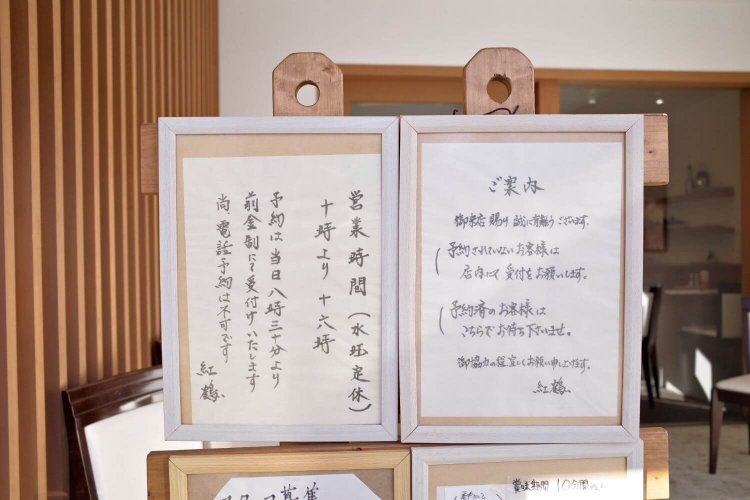 営業時間(水曜定休)
十時より十六時
予約は当日八時三十分より
前金制にて受付けいたします
尚、電話予約は不可です
紅鶴
ご案内
御来店賜り誠に有難うございます。
予約されていないお客様は
店内にて受付をお願いします。
予約済のお客様は
こちらでお待ち下さいませ。
御協力の程、宜しくお願い申し上げます。
紅鶴
賞味期間 10分間